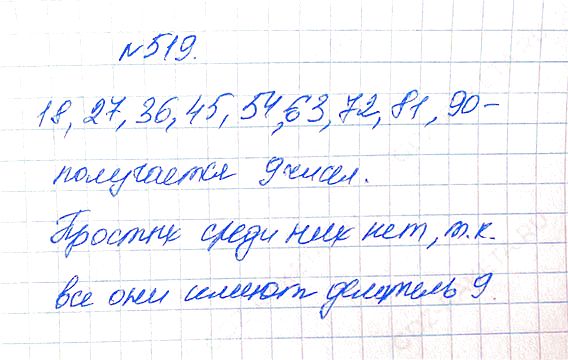 №519.
18, 27, 36, 45, 54, 63, 72, 81, 90-
получается 9 чисел.
Простых среди них нет, т.к.
все они имеют делитель 9.